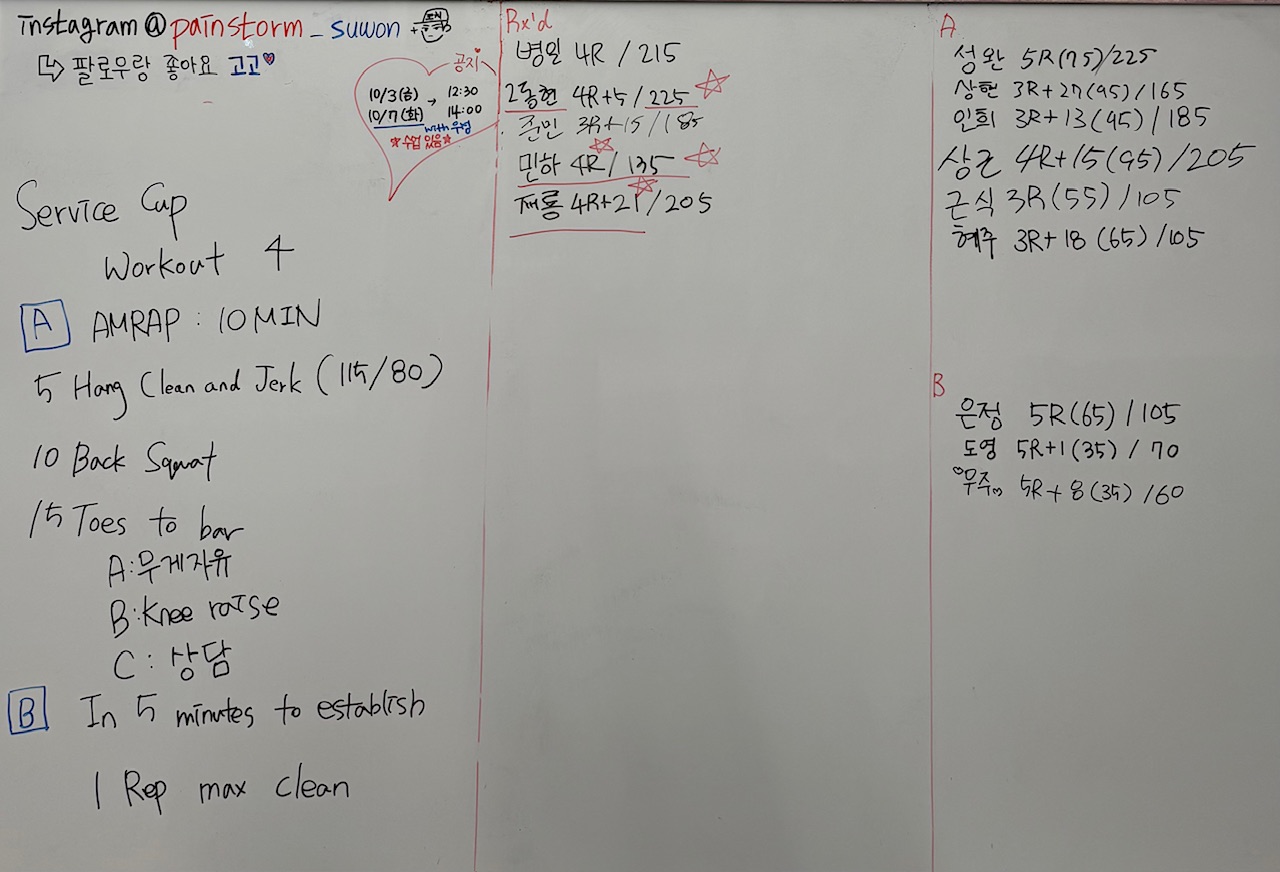 instagram@painstorm_suwon
팔로우랑 좋아요 고고
공지
10/3(금) → 12:30
10/7(화) 14:00
with 우정
*수업 있음*
Service Cup
Workout 4
A AMRAP : 10 MIN
5 Hang Clean and Jerk (115/80)
10 Back Squat
15 Toes to bar
A:무게자유
B:Knee raise
C: 상담
B In 5 minutes to establish
1 Rep max clean
Rx'd
병일 4R / 215
2동현 4R+5 / 225
준민 3R+15 / 185
민하 4R / 135
재룡 4R+21 / 205
A
성완 5R(75)/225
상현 3R+27(95)/165
인희 3R+13(95)/185
상근 4R+15(95)/205
근식 3R(55)/105
혜주 3R+18 (65)/105
B
은정 5R(65)/105
도영 5R+1(35) / 70
우주 5R+8(35) /60